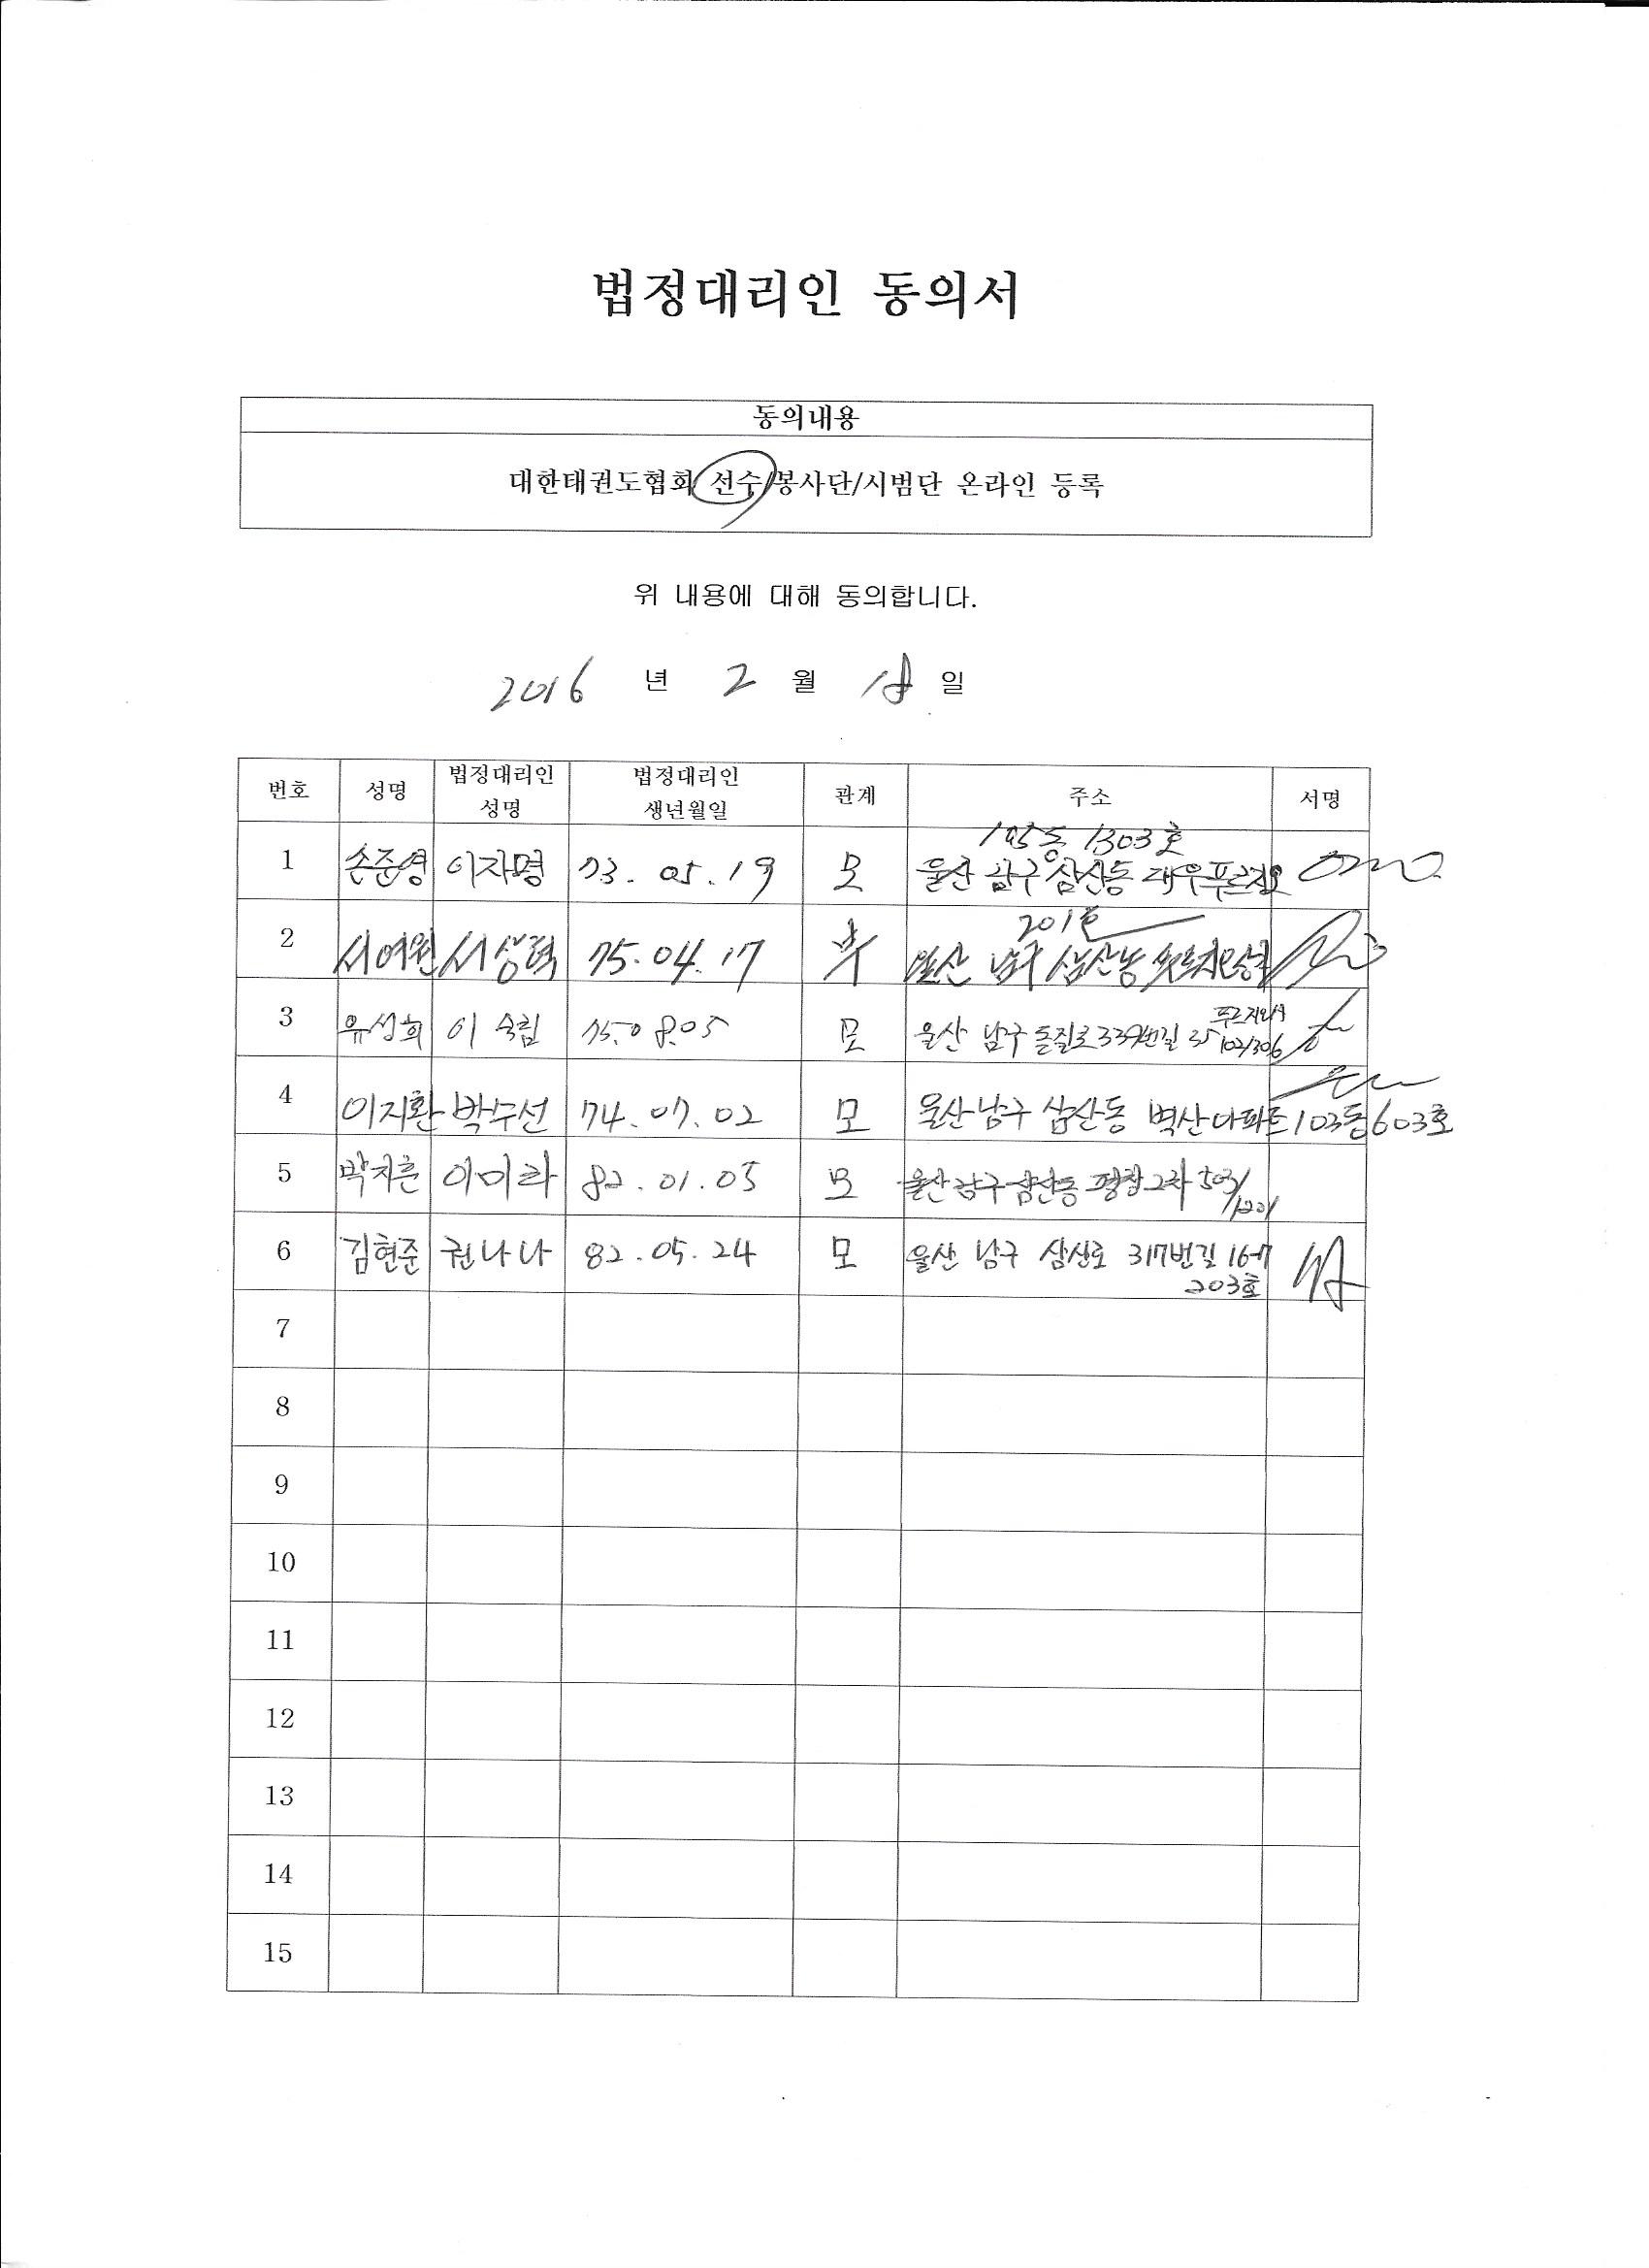 법정대리인 동의서
동의내용
대한태권도협회 선수/봉사단/시범단 온라인 등록
위 내용에 대해 동의합니다.
2016 년 2 월 18 일
번호 성명 법정대리인 성명 법정대리인 생년월일 관계 주소 서명
1303호
1 손준영 이자명 73.05.19 모 울산 남구 삼산동 대우푸르지오
201호
2 서여원 서상혁 75.04.17 부 울산 남구 삼산동
푸르지오
3 유성희 이숙림 75.08.05 모 울산 남구 돋질로 339번길 35 102/306
4 이지환 박수선 74.07.02 모 울산 남구 삼산동 벽산아파트 103동 603호
5 박지훈 이미라 82.01.05 모 울산 남구 삼산동 평창2차 503/1201
6 김현준 권나나 82.05.24 모 울산 남구 삼산로 317번길 16-7
203호
7
8
9
10
11
12
13
14
15